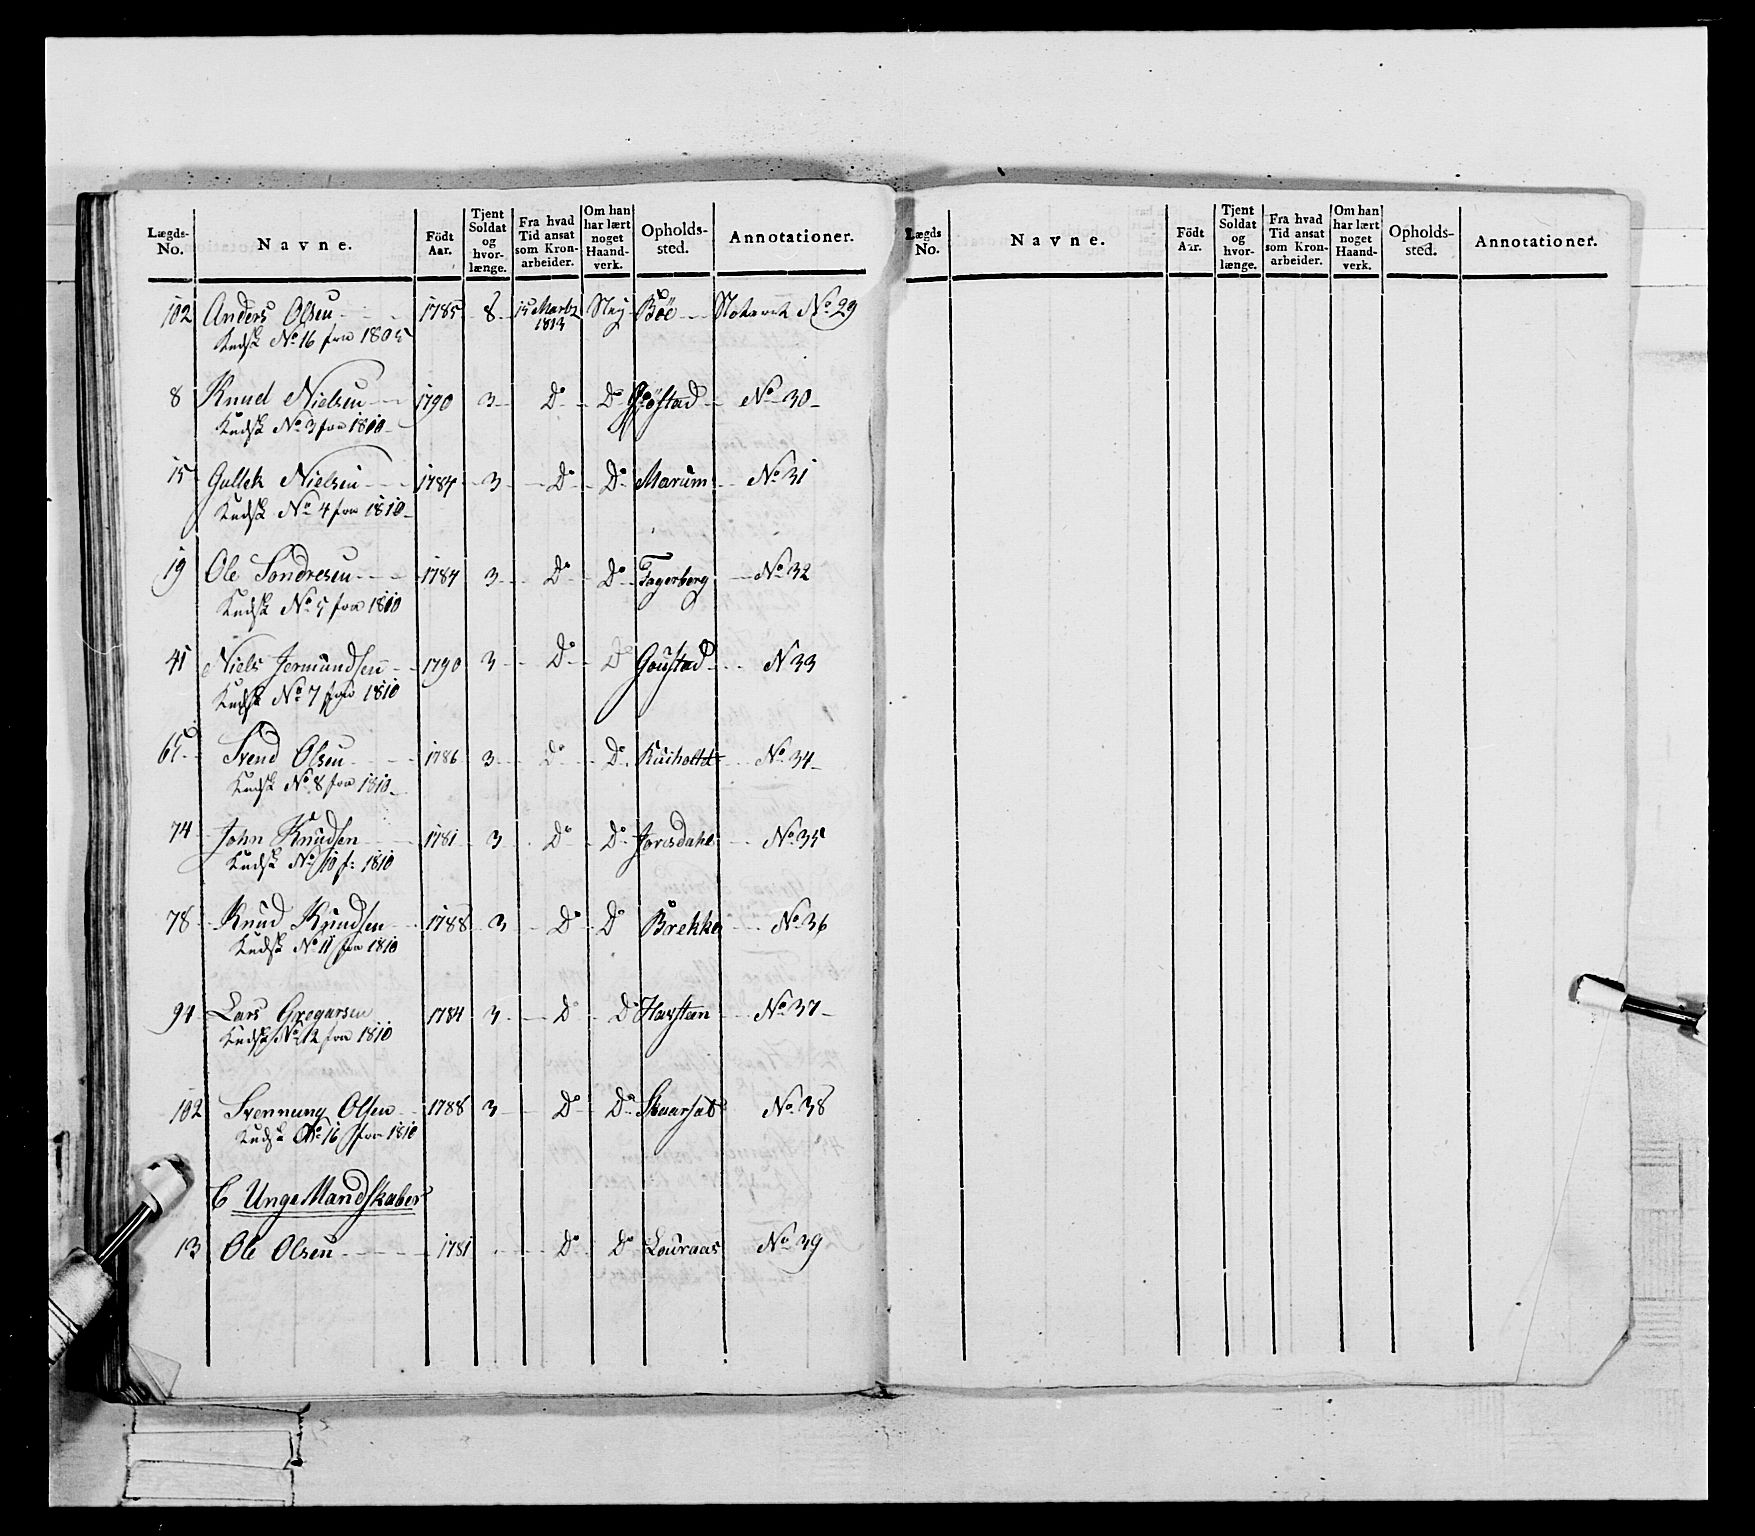 Lægds- No. | Navne. | Födt Aar. | Tjent Soldat og hvor-længe. | Fra hvad Tid ansat som Kron-arbeider. | Om han har lært noget Haand-verk. | Opholds-sted. | Annotationer.
102 Anders Olsen 1785 8 15 Martz 1813 Ney Böe Notaret No 29
Kudsk No 16 fra 1805
8 Knud Nielsen 1790 3 Do Do No 30
Kudsk No 3 fra 1810
15 Gullek Nielsen 1784 3 Do Do Marum No 31
Kudsk No 4 fra 1810
19 Ole Sondresen 1784 3 Do Do Fagerberg No 32
Kudsk No 5 fra 1810
41 Niels Jermundsen 1790 3 Do Do Goustad N 33
Kudsk No 7 fra 1810
65 Svend Olsen 1786 3 Do Do No 34
Kudsk No 8 fra 1810
74 John Knudsen 1781 3 Do Do Joresdahl No 35
Kudsk No 10 f: 1810
78 Knud Knudsen 1788 3 Do Do Brekke No 36
Kudsk No 11 fra 1810
94 Lars Gregarsen 1784 3 Do Do Haxstein No 37
Kudsk No 12 fra 1810
102 Svennung Olsen 1788 3 Do Do No 38
Kudsk No 16 fra 1810
C Unge Mandskaber
13 Ole Olsen 1781 Do Do Louraas No 39
Lægds No. | Navne. | Födt Aar. | Tjent Soldat og hvor-længe. | Fra hvad Tid ansat som Kron-arbeider. | Om han har lært noget Haand-verk. | Opholds-sted. | Annotationer.